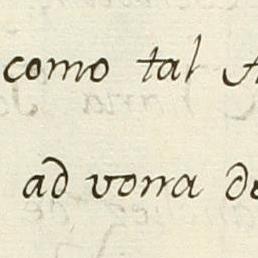 como tal
ad vona de